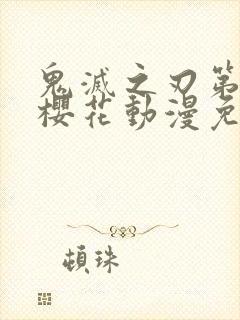 鬼滅之刃第
櫻花動漫免
頓珠